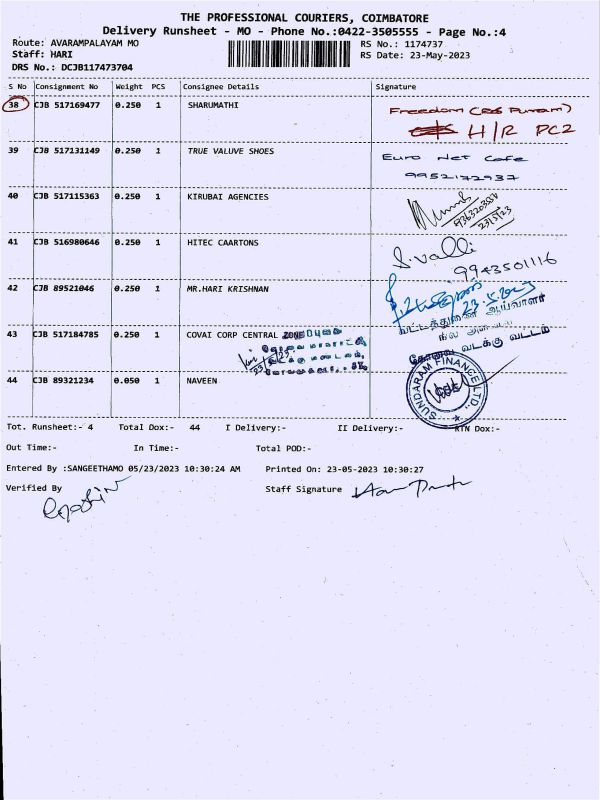 THE PROFESSIONAL COURIERS, COIMBATORE
Delivery Runsheet - MO - Phone No.:0422-3505555 - Page No.:4
Route: AVARAMPALAYAM MO
RS No.: 1174737
Staff: HARI
RS Date: 23-May-2023
DRS No.: DCJB117473704
S No Consignment No Weight PCS Consignee Details Signature
38 CJB 517169477 0.250 1 SHARUMATHI
Freedom
H/R PC2
39 CJB 517131149 0.250 1 TRUE VALUVE SHOES
Euro Net Cafe
9952172937
40 CJB 517115363 0.250 1 KIRUBAI AGENCIES
23/5/23
41 CJB 516980646 0.250 1 HITEC CAARTONS
S.Valli
9943501116
42 CJB 89521046 0.250 1 MR.HARI KRISHNAN
23.5.2023
வட்டத்துணை ஆய்வாளர்
கோவை வடக்கு வட்டம்
43 CJB 517184785 0.250 1 COVAI CORP CENTRAL ZONE
44 CJB 89321234 0.050 1 NAVEEN
SUNDARAM FINANCE LTD.,
Tot. Runsheet:- 4 Total Dox:- 44 I Delivery:- II Delivery:- RTN Dox:-
Out Time:- In Time:- Total POD:-
Entered By :SANGEETHAMO 05/23/2023 10:30:24 AM Printed On: 23-05-2023 10:30:27
Verified By
Staff Signature